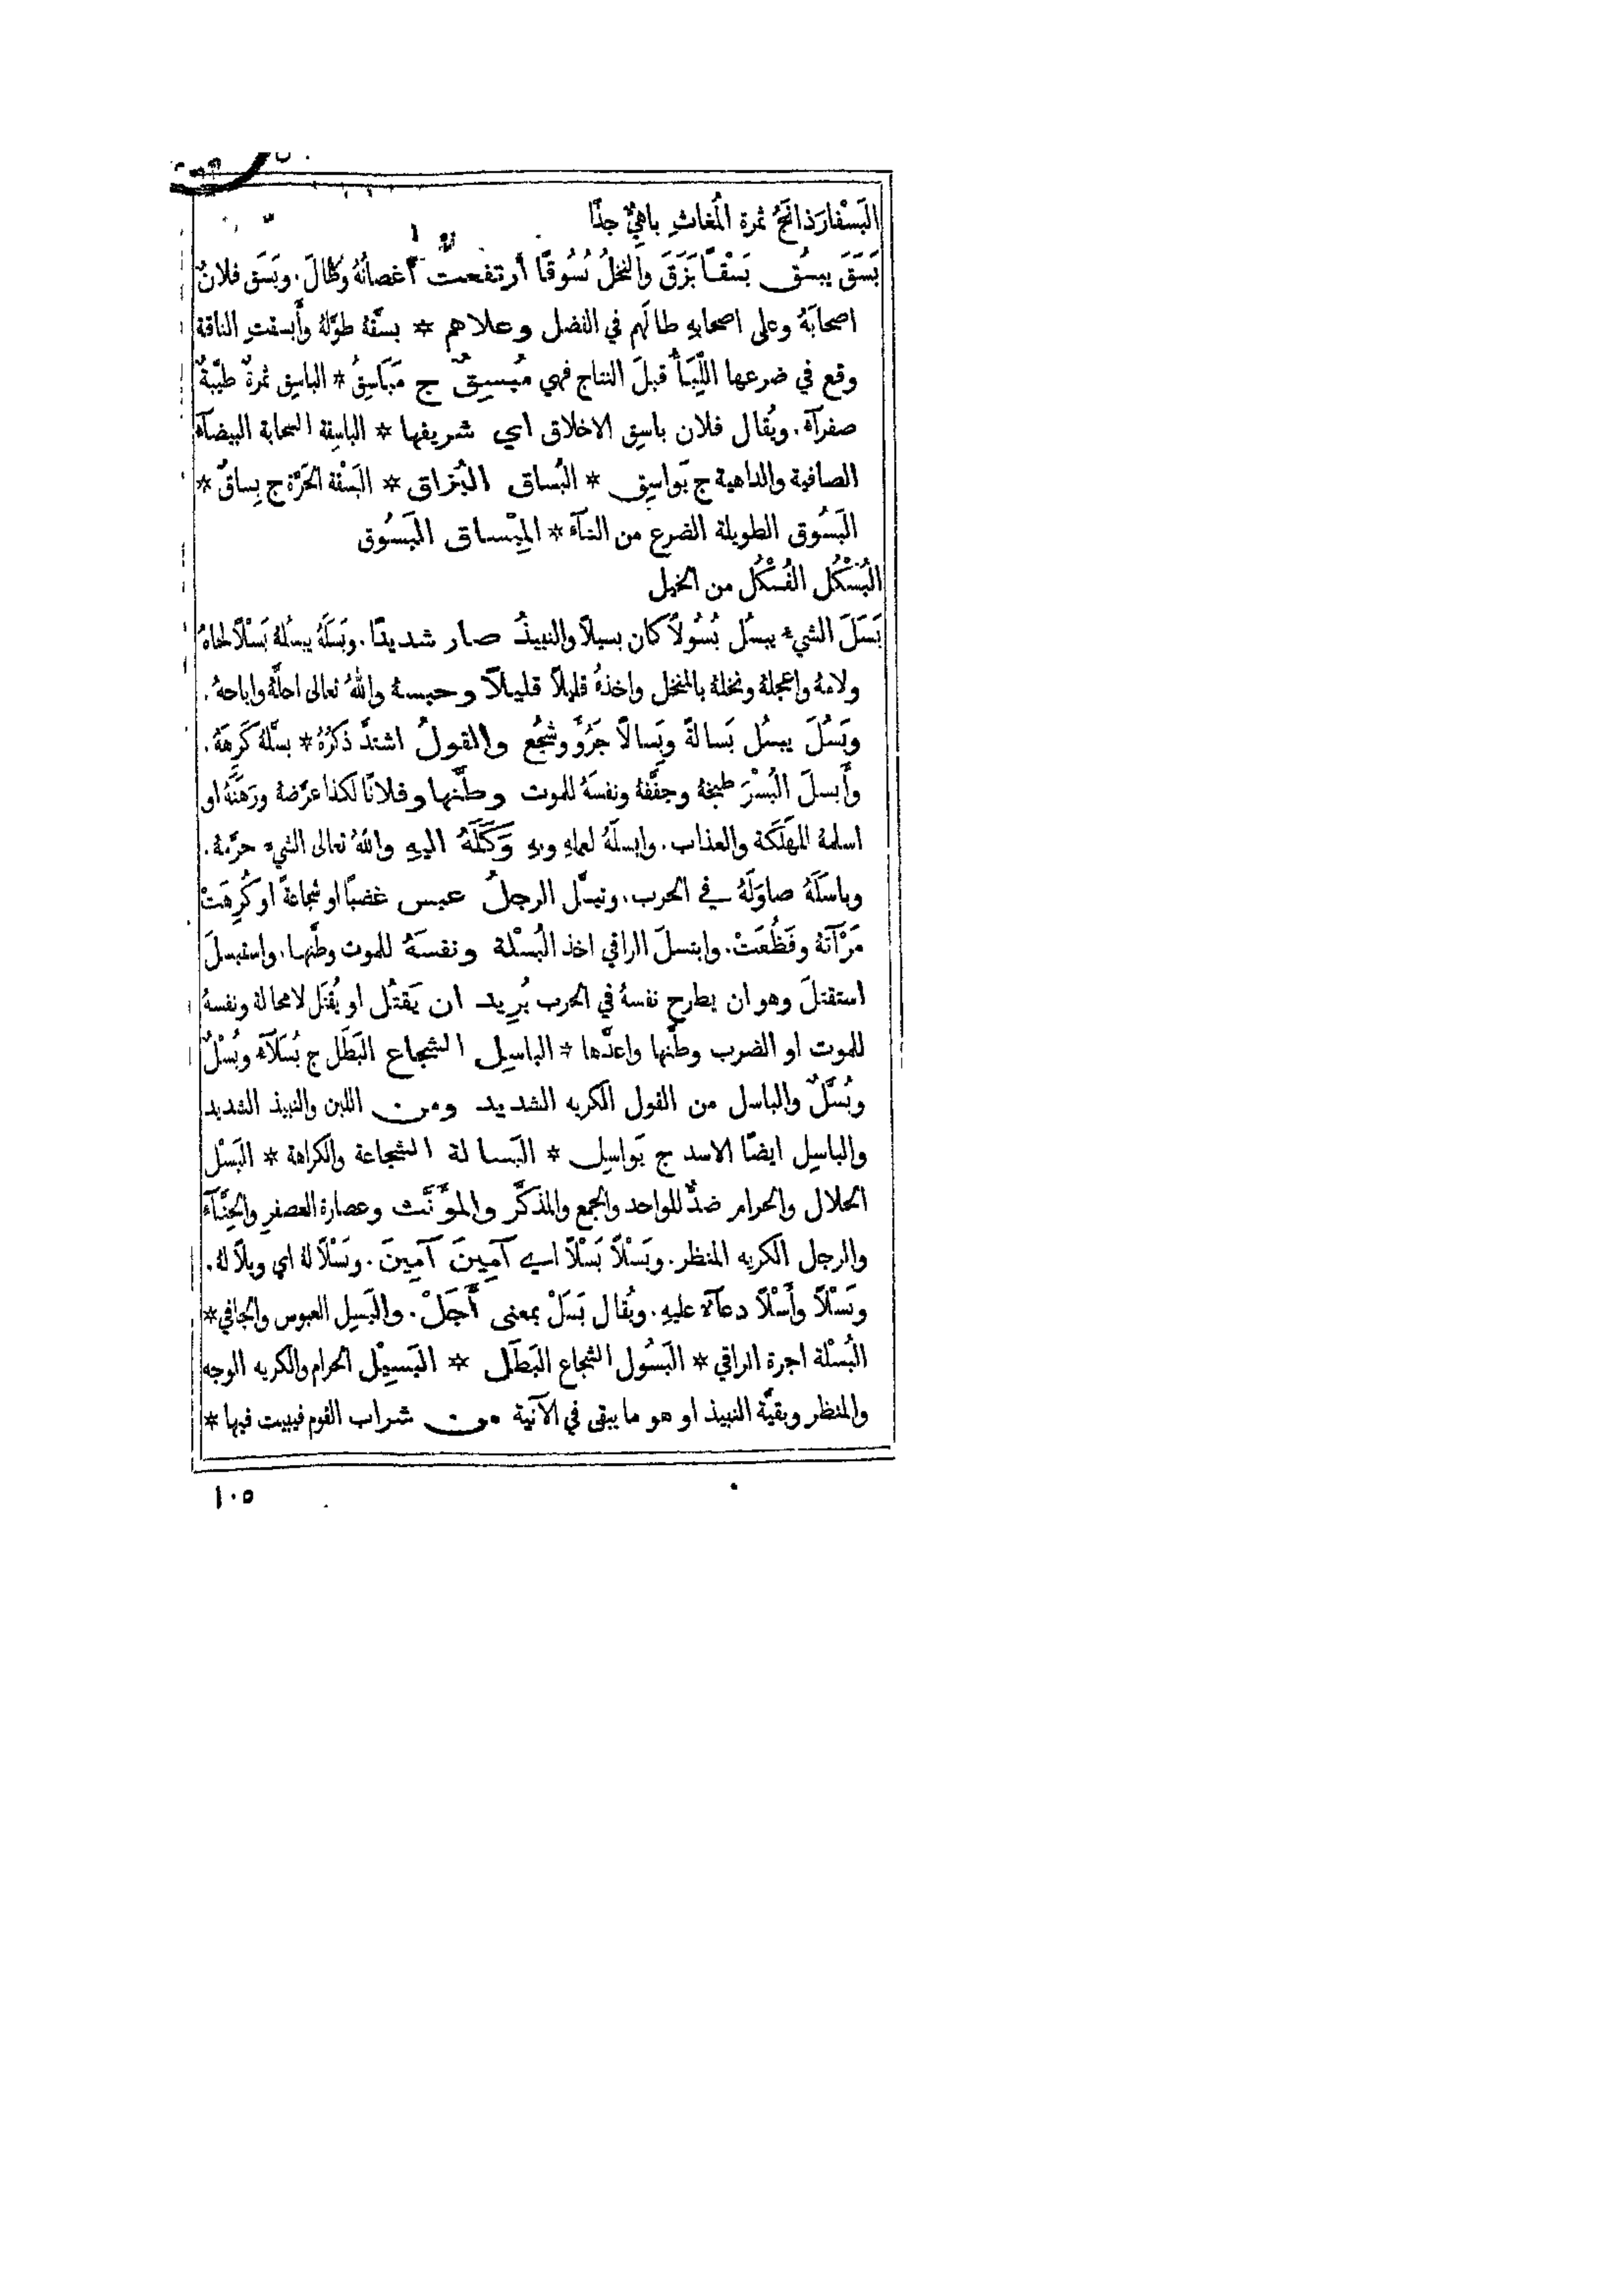 البَسْفارَذانَجُ ثمرة المُغاثِ باهيٌّ جدًّا
بَسَقَ يبسُق بَسْقًا بَزَقَ والنخلُ بُسُوقًا أرتفعت أغصانُهُ وطالَ. وبَسَق فلانٌ
اصحابَهُ وعلى اصحابهِ طالَهم في الفضل وعلاهم * بسَّقهُ طوَّلهُ وأَبسقتِ الناقة
وقع في ضرعها اللِّبَأُ قبلَ النتاج فهي مُبسِقٌ ج مَبَاسِقُ * الباسِق ثمرةٌ طيّبةٌ
صفرآءُ. ويُقال فلان باسِق الاخلاق اي شريفها * الباسِقة السحابة البيضآء
الصافية والداهية ج بَواسِق * البُساق البُزاق * البَسْقة الحَرَّة ج بِساقٌ *
البَسُوق الطويلة الضرع من الشآء * المِبْساق البَسُوق
البُسْكُل الفُسْكُل من الخيل
بَسَلَ الشيءُ يبسُل بُسُولًا كان بسيلًا والنبيذُ صار شديدًا. وبَسَلَهُ يبسُلهُ بَسْلًا لحاهُ
ولامهُ واعجلهُ ونخلهُ بالمنخل واخذهُ قليلًا قليلًا وحبسهُ واللهُ تعالى احلَّهُ واباحهُ.
وبَسُلَ يبسُل بَسالةً وبَسالًا جَرُؤَ وشجُع والقولُ اشتدَّ ذكرُهُ * بسَّلهُ كَرِهَهُ.
وأَبسلَ البُسْرَ طبخهُ وجفَّفهُ ونفسَهُ للموت وطَّنها وفلانًا لكذا عرَّضهُ ورَهَنَهُ او
اسلمهُ للهَلَكة والعذاب. وابسلَهُ لعملهِ وبهِ وَكَلَهُ اليهِ واللهُ تعالى الشيءَ حرَّمهُ.
وباسَلَهُ صاوَلَهُ في الحرب. وتبسَّل الرجلُ عبس غضبًا او شجاعةً او كُرِهَتْ
مَرْآتهُ وفَظُعَتْ. وابتسلَ الراقي اخذ البُسْلة ونفسَهُ للموت وطَّنها. واستبسلَ
استقتلَ وهو ان يطرح نفسهُ في الحرب يُريد ان يَقتُل او يُقتَل لا محالة ونفسهُ
للموت او الضرب وطَّنها واعدَّها * الباسِل الشجاع البَطَل ج بُسَلآءُ وبُسْلٌ
وبُسَّلٌ والباسل من القول الكريه الشديد ومن اللبن والنبيذ الشديد
والباسِل ايضًا الاسد ج بَواسِل * البَسالة الشجاعة والكراهة * البَسْل
الحلال والحرام ضدٌّ للواحد والجمع والمذكَّر والمؤَنَّث وعصارة العصفر والحِنَّآء
والرجل الكريه المنظر. وبَسْلًا بَسْلًا اي آمِينَ آمِينَ. وبَسْلًا لهُ اي ويلًا لهُ.
وبَسْلًا وأَسْلًا دعآءٌ عليهِ. ويُقال بَسَلْ بمعنى أَجَلْ. والبَسِيل العبوس والجافي *
البُسْلة اجرة الراقي * البَسُول الشجاع البَطَل * البَسِيْل الحرام والكريه الوجه
والمنظر وبقيَّة النبيذ او هو ما يبقى في الآنية من شراب القوم فيبيت فيها *
١٠٥